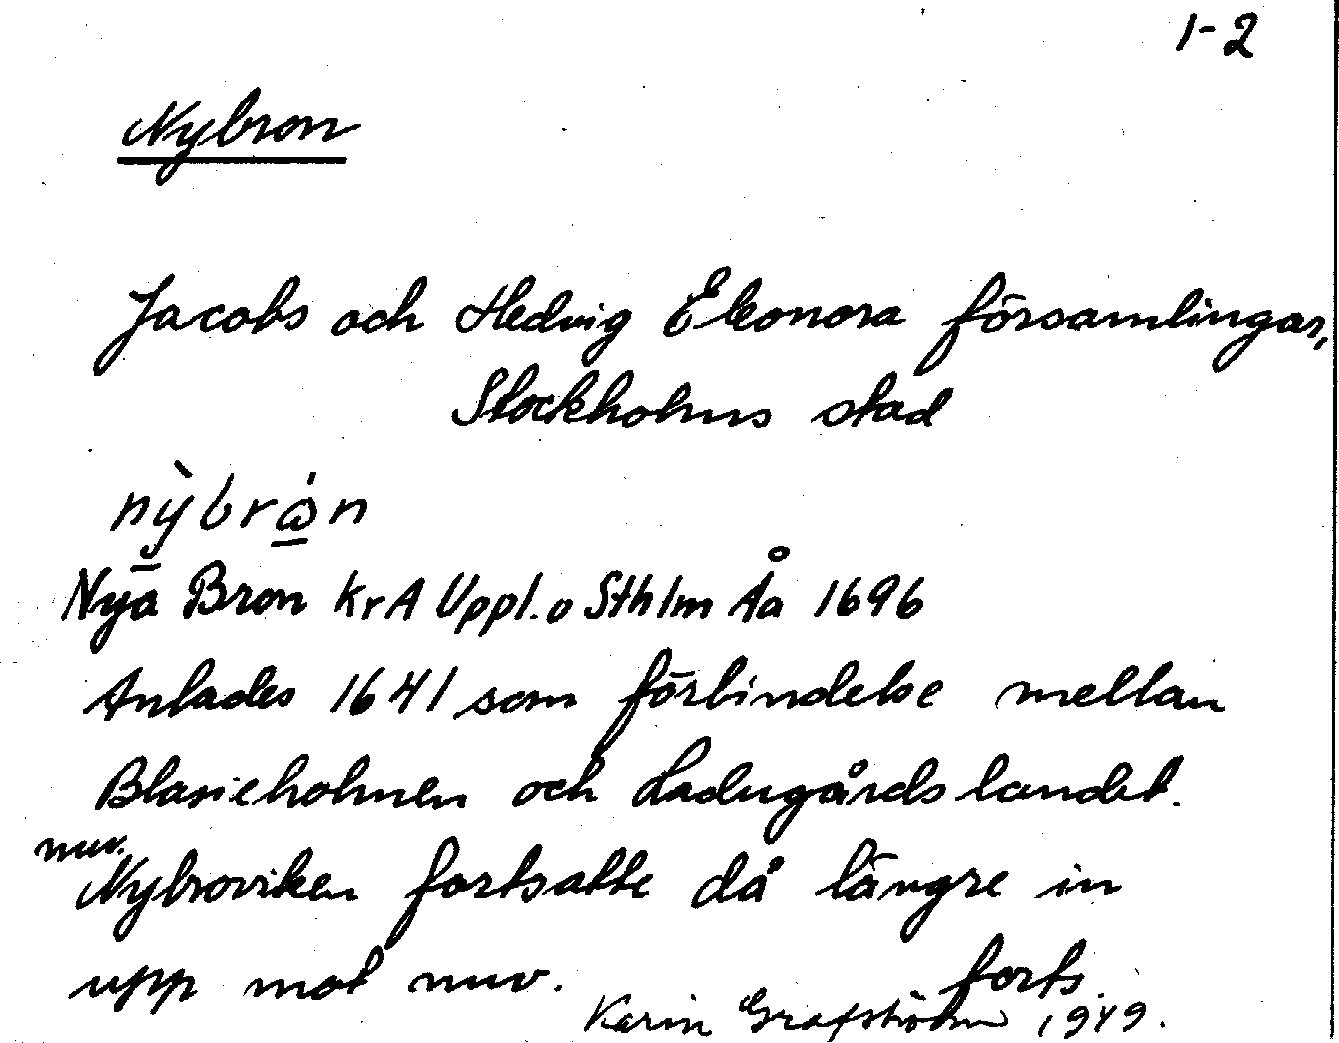 1-2
Nybron
Jacobs och Hedvig Eleonora församlingar,
Stockholms stad
nỳbrɷ́n
Nya Bron KrA Uppl. o Sthlm Åa 1696
Anlades 1641 som förbindelse mellan
Blasieholmen och Ladugårdslandet.
nuv.
Nybroviken fortsatte då längre in
upp mot nuv. forts.
Karin Grafström 1949.